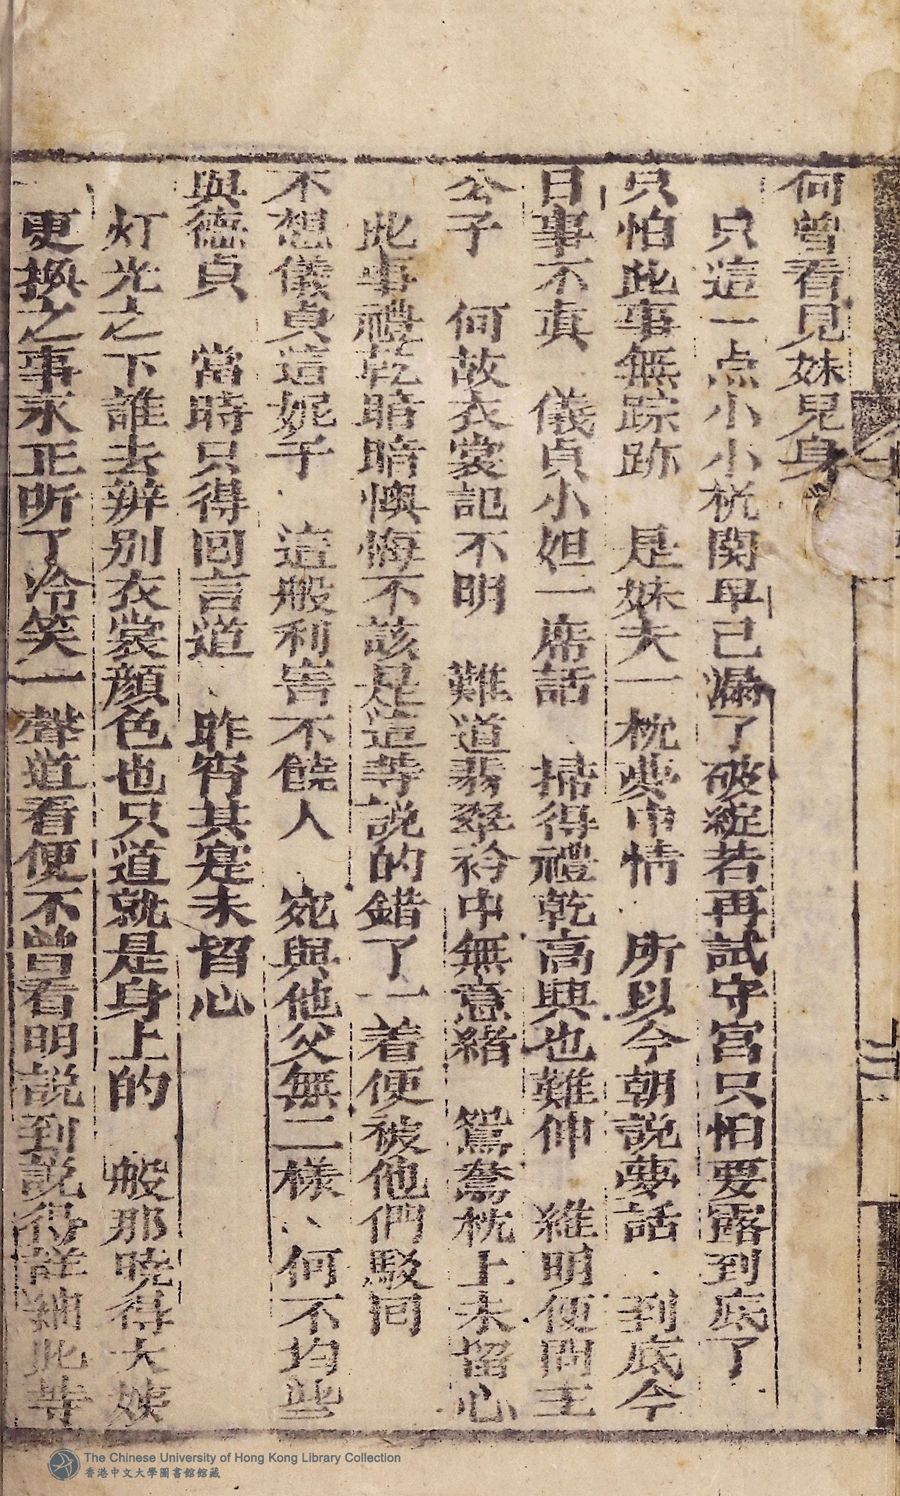 何曾看見妹兒身
只這一点小小机関早已漏了破綻若再試守宮只怕要露到底了
只怕此事無踪跡　是妹夫一枕夢中情　所以今朝説夢話　到底今
日事不真　儀貞小姐一席話　掃得禮乾高興也難伸　維明便問王
公子　何故衣裳記不明　難道翡翠衿中無意緒　鴛鴦枕上未留心
此事禮乾暗暗懊悔不該是這等説的錯了一着便被他們駁同
不想儀貞這妮子　這般利害不饒人　宛與他父無二樣　何不均些
與德貞　當時只得囬言道　昨宵其寔未留心
灯光之下誰去辨别衣裳顔色也只道就是身上的　般那曉得大姨
更換之事永正听了冷笑一聲道看便不曾看明説到説得詳細此等
The Chinese University of Hong Kong Library Collection
香港中文大學圖書館館藏